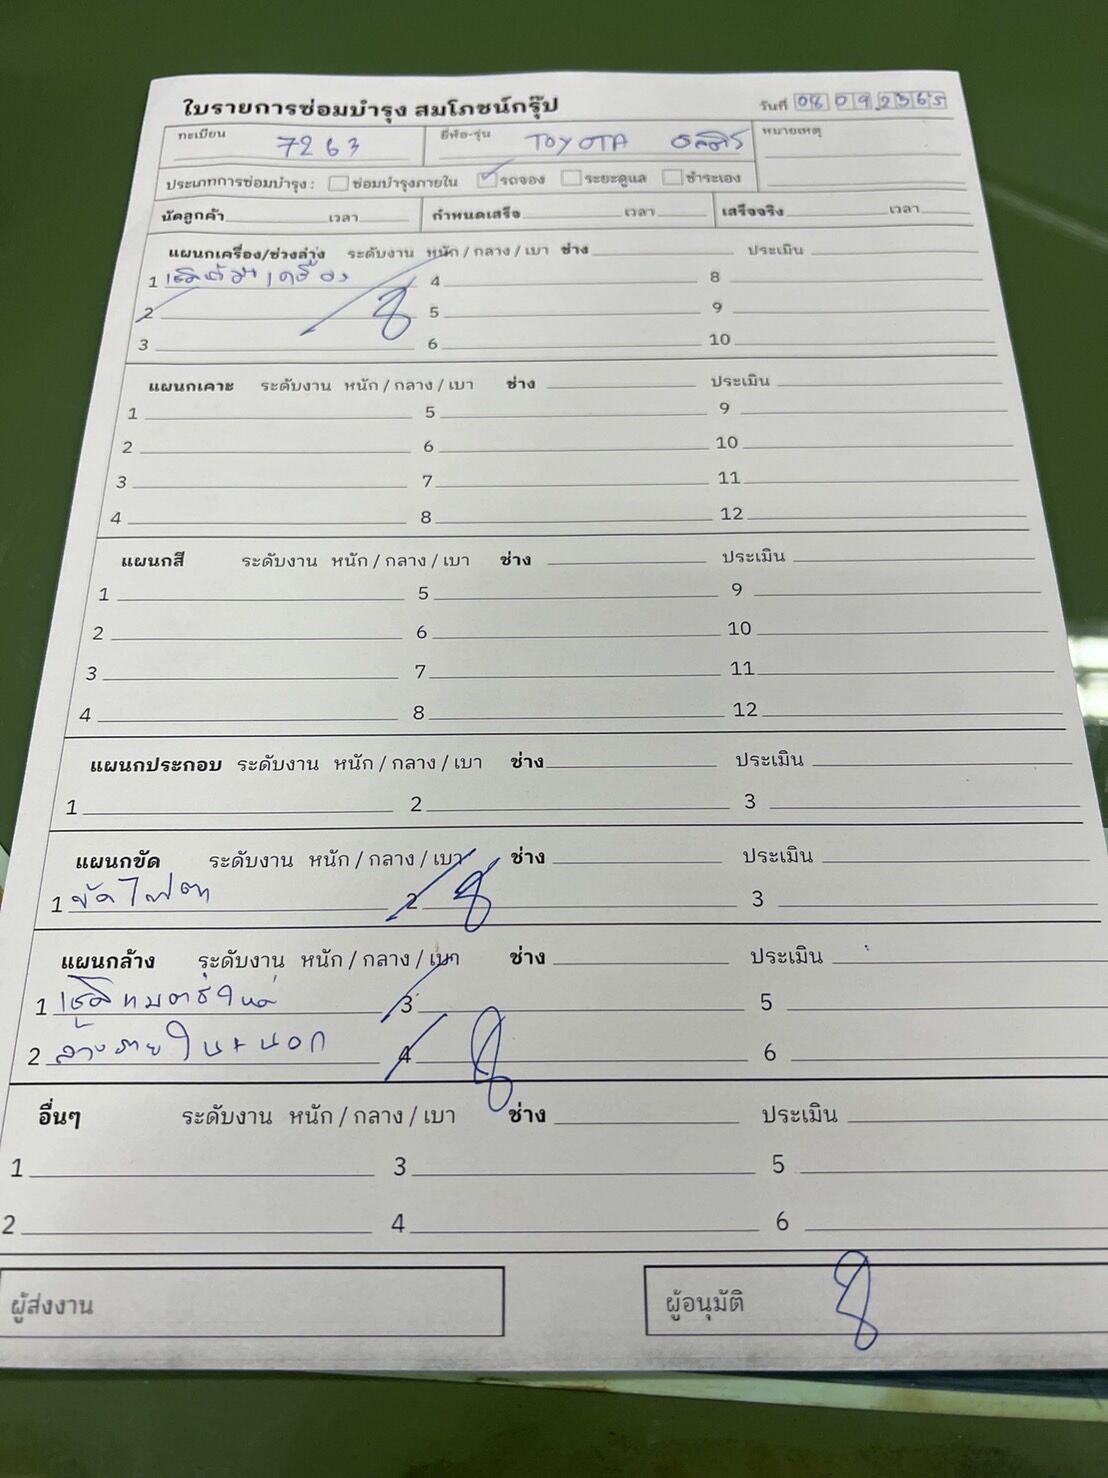 ใบรายการซ่อมบำรุง สมโภชน์กรุ๊ป วันที่
ทะเบียน 7263 ยี่ห้อ-รุ่น TOYOTA หมายเหตุ
ประเภทการซ่อมบำรุง : ซ่อมบำรุงภายใน รถจอง ระยะดูแล ชำระเอง
นัดลูกค้า เวลา กำหนดเสร็จ เวลา เสร็จจริง เวลา
แผนกเครื่อง/ช่วงล่าง ระดับงาน หนัก / กลาง / เบา ช่าง ประเมิน
1 4 8
2 5 9
3 6 10
แผนกเคาะ ระดับงาน หนัก / กลาง / เบา ช่าง ประเมิน
1 5 9
2 6 10
3 7 11
4 8 12
แผนกสี ระดับงาน หนัก / กลาง / เบา ช่าง ประเมิน
1 5 9
2 6 10
3 7 11
4 8 12
แผนกประกอบ ระดับงาน หนัก / กลาง / เบา ช่าง ประเมิน
1 2 3
แผนกขัด ระดับงาน หนัก / กลาง / เบา ช่าง ประเมิน
1 ขัดไฟตา 2 3
แผนกล้าง ระดับงาน หนัก / กลาง / เบา ช่าง ประเมิน
1 3 5
2 ล้างภายใน+นอก 4 6
อื่นๆ ระดับงาน หนัก / กลาง / เบา ช่าง ประเมิน
1 3 5
2 4 6
ผู้ส่งงาน ผู้อนุมัติ